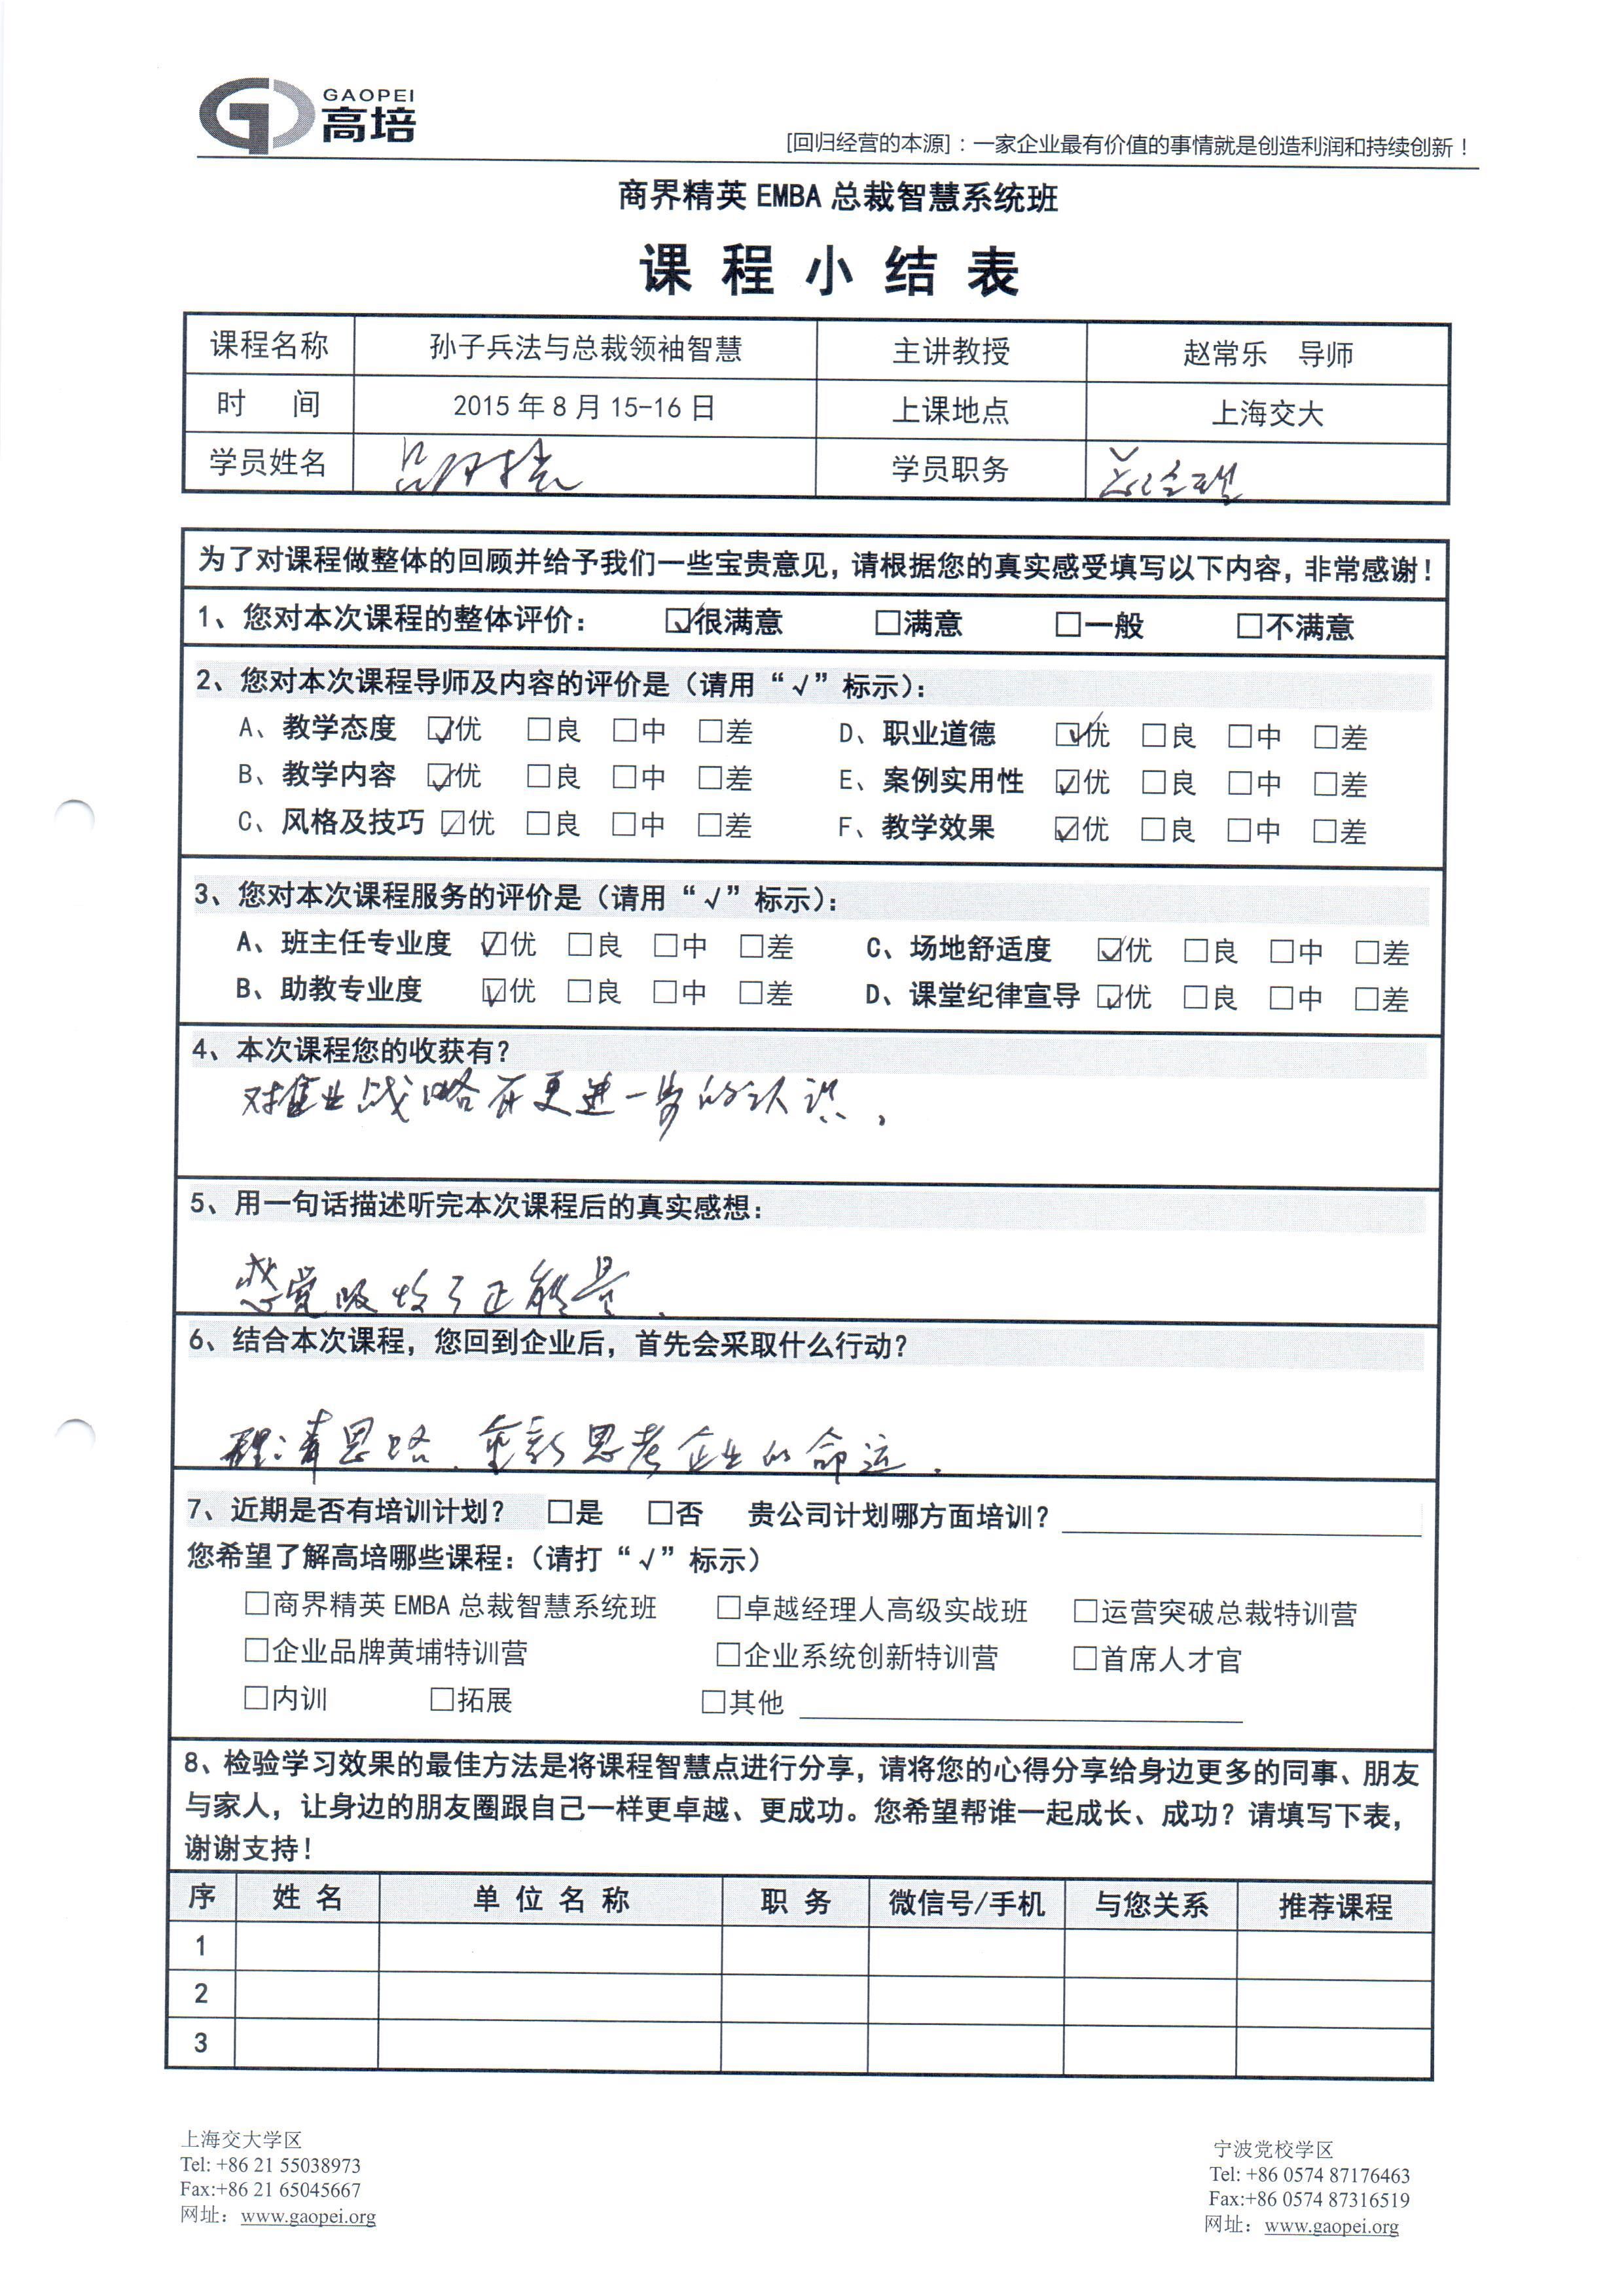 GAOPEI
高培
[回归经营的本源]：一家企业最有价值的事情就是创造利润和持续创新！
商界精英 EMBA 总裁智慧系统班
课 程 小 结 表
课程名称 孙子兵法与总裁领袖智慧 主讲教授 赵常乐 导师
时 间 2015 年 8 月 15-16 日 上课地点 上海交大
学员姓名 学员职务 总经理
为了对课程做整体的回顾并给予我们一些宝贵意见，请根据您的真实感受填写以下内容，非常感谢！
1、您对本次课程的整体评价： ☑很满意 □满意 □一般 □不满意
2、您对本次课程导师及内容的评价是（请用“√”标示）：
A、教学态度 ☑优 □良 □中 □差 D、职业道德 ☑优 □良 □中 □差
B、教学内容 ☑优 □良 □中 □差 E、案例实用性 ☑优 □良 □中 □差
C、风格及技巧 ☑优 □良 □中 □差 F、教学效果 ☑优 □良 □中 □差
3、您对本次课程服务的评价是（请用“√”标示）：
A、班主任专业度 ☑优 □良 □中 □差 C、场地舒适度 ☑优 □良 □中 □差
B、助教专业度 ☑优 □良 □中 □差 D、课堂纪律宣导 ☑优 □良 □中 □差
4、本次课程您的收获有？
对企业战略有更进一步的认识。
5、用一句话描述听完本次课程后的真实感想：
感觉吸收了正能量.
6、结合本次课程，您回到企业后，首先会采取什么行动？
理清思路.重新思考企业的命运.
7、近期是否有培训计划？ □是 □否 贵公司计划哪方面培训？
您希望了解高培哪些课程：（请打“√”标示）
□商界精英 EMBA 总裁智慧系统班 □卓越经理人高级实战班 □运营突破总裁特训营
□企业品牌黄埔特训营 □企业系统创新特训营 □首席人才官
□内训 □拓展 □其他
8、检验学习效果的最佳方法是将课程智慧点进行分享，请将您的心得分享给身边更多的同事、朋友
与家人，让身边的朋友圈跟自己一样更卓越、更成功。您希望帮谁一起成长、成功？请填写下表，
谢谢支持！
序 姓 名 单 位 名 称 职 务 微信号/手机 与您关系 推荐课程
1
2
3
上海交大学区
Tel: +86 21 55038973
Fax:+86 21 65045667
网址：www.gaopei.org
宁波党校学区
Tel: +86 0574 87176463
Fax:+86 0574 87316519
网址：www.gaopei.org